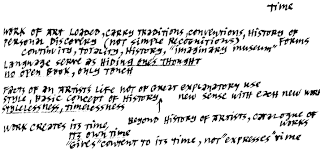 time
WORK OF ART LOADED, CARRY TRADITIONS, CONVENTIONS, HISTORY OF
PERSONAL DISCOVERY (NOT SIMPLE RECOGNITIONS) FORMS
CONTINUITY, TOTALITY, HISTORY, "IMAGINARY MUSEUM"
LANGUAGE SERVE AS HIDING ONE'S THOUGHT
NO OPEN BOOK, ONLY TOUCH
FACTS OF AN ARTISTS LIFE NOT OF GREAT EXPLANATORY USE
STYLE, BASIC CONCEPT OF HISTORY, NEW SENSE WITH EACH NEW WORK
STYLELESSNESS, TIMELESSNESS
BEYOND HISTORY OF ARTISTS, CATALOGUE OF WORKS
WORK CREATES ITS TIME,
ITS OWN TIME
"GIVES" CONTENT TO ITS TIME, NOT "EXPRESSES" TIME